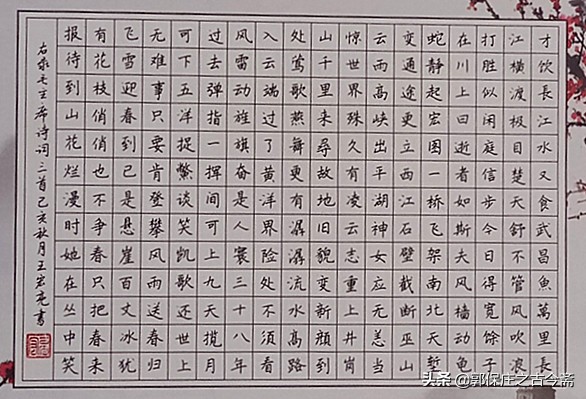 才饮長江水又食武昌魚萬里長
江横渡极目楚天舒不管風吹浪
打胜似闲庭信步今日得寬馀子
在川上曰逝者如斯夫风樯动龟
蛇静起宏图一桥飞架南北天堑
变通途更立西江石壁截断巫山
云雨高峡出平湖神女應无恙当
惊世界殊久有凌云志重上井岗
山千里来尋故地旧貌变新颜到
处莺歌燕舞更有潺潺流水高路
入云端过了黄洋界险处不須看
风雷动旌旗奋是人寰三十八年
过去弹指一挥间可上九天揽月
可下五洋捉鳖談笑凯歌还世上
无难事只要肯登攀风雨送春归
飞雪迎春到已是悬崖百丈冰犹
有花枝俏俏也不争春只把春来
报待到山花烂漫时她在丛中笑
右录毛主席诗词三首己亥秋月王宏亮書
头条 @郭保庄之古今斋